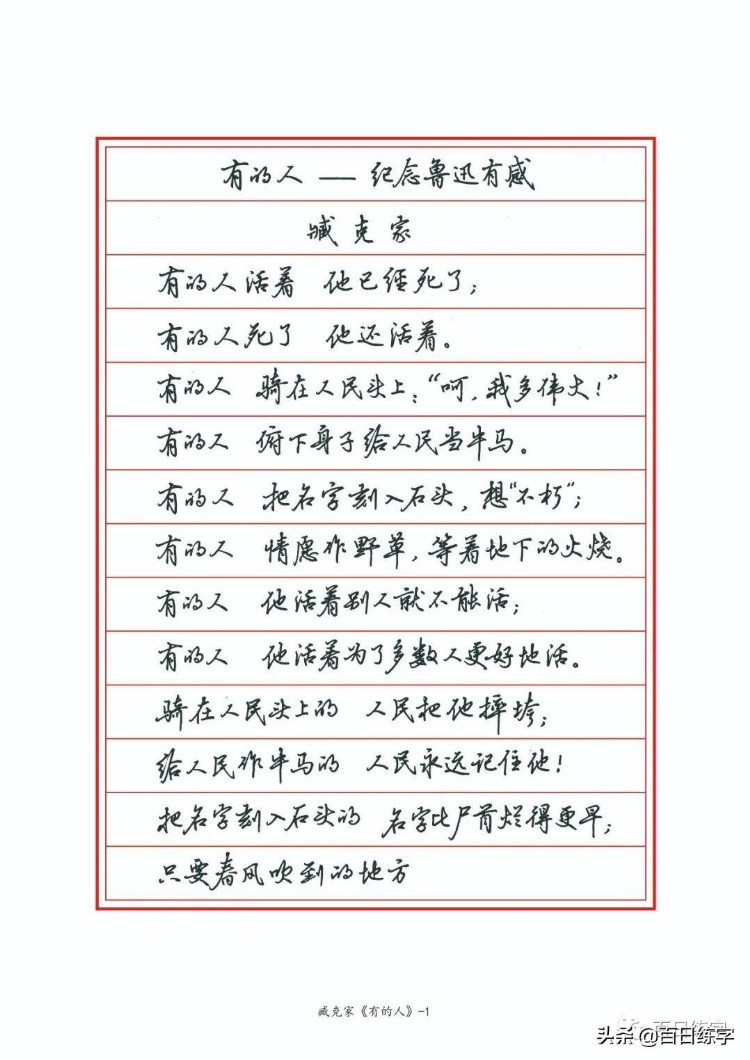 有的人 —— 纪念鲁迅有感
臧克家
有的人活着 他已经死了；
有的人死了 他还活着。
有的人 骑在人民头上：“呵，我多伟大！”
有的人 俯下身子给人民当牛马。
有的人 把名字刻入石头，想“不朽”；
有的人 情愿作野草，等着地下的火烧。
有的人 他活着别人就不能活；
有的人 他活着为了多数人更好地活。
骑在人民头上的 人民把他摔垮；
给人民作牛马的 人民永远记住他！
把名字刻入石头的 名字比尸首烂得更早；
只要春风吹到的地方
臧克家《有的人》-1
百日练字
头条 @百日练字